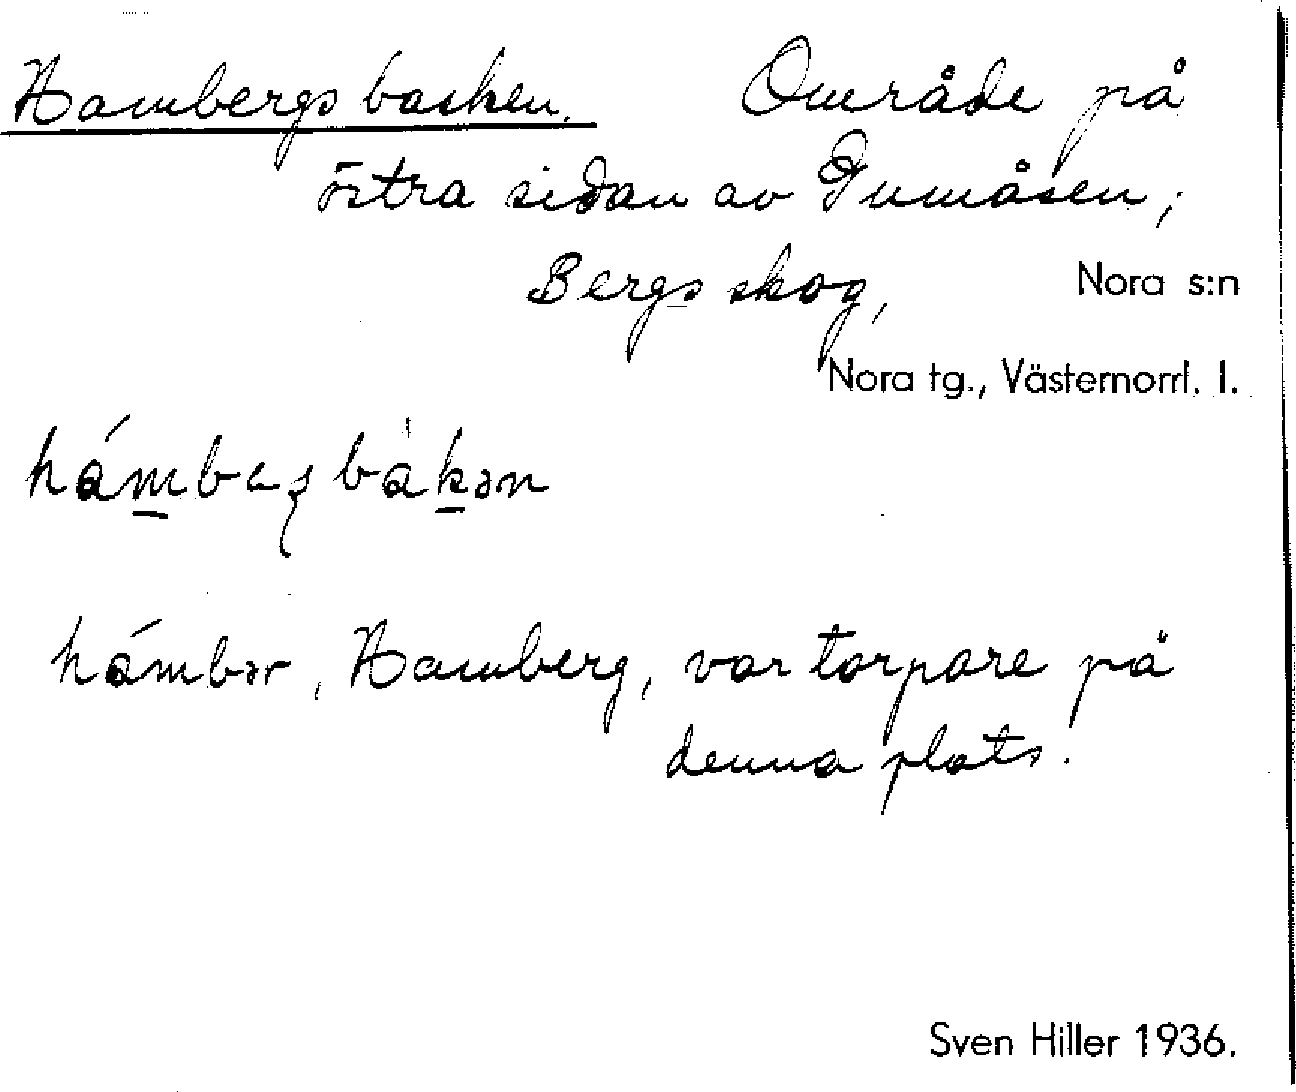 Hambergsbacken. Område på
östra sidan av Tumåsen,
Bergs skog, Nora s:n
Nora tg., Västernorrl. l.
hámbəʂbàkən
hámbər, Hamberg, var torpare på
denna plats.
Sven Hiller 1936.